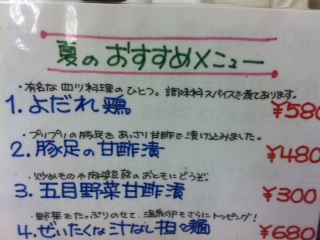 夏のおすすめメニュー
・有名な四川料理のひとつ。調味料スパイスで煮てあります。
1. よだれ鶏 ¥580
・プリプリの豚足をあっさり甘酢で漬け込みました。
2. 豚足の甘酢漬 ¥480
・炒めものや麻婆豆腐のおともにどうぞ
3. 五目野菜甘酢漬 ¥300
・野菜をたっぷりのせて、温泉卵もさらにトッピング!
4. ぜいたくな汁なし担々麺 ¥680